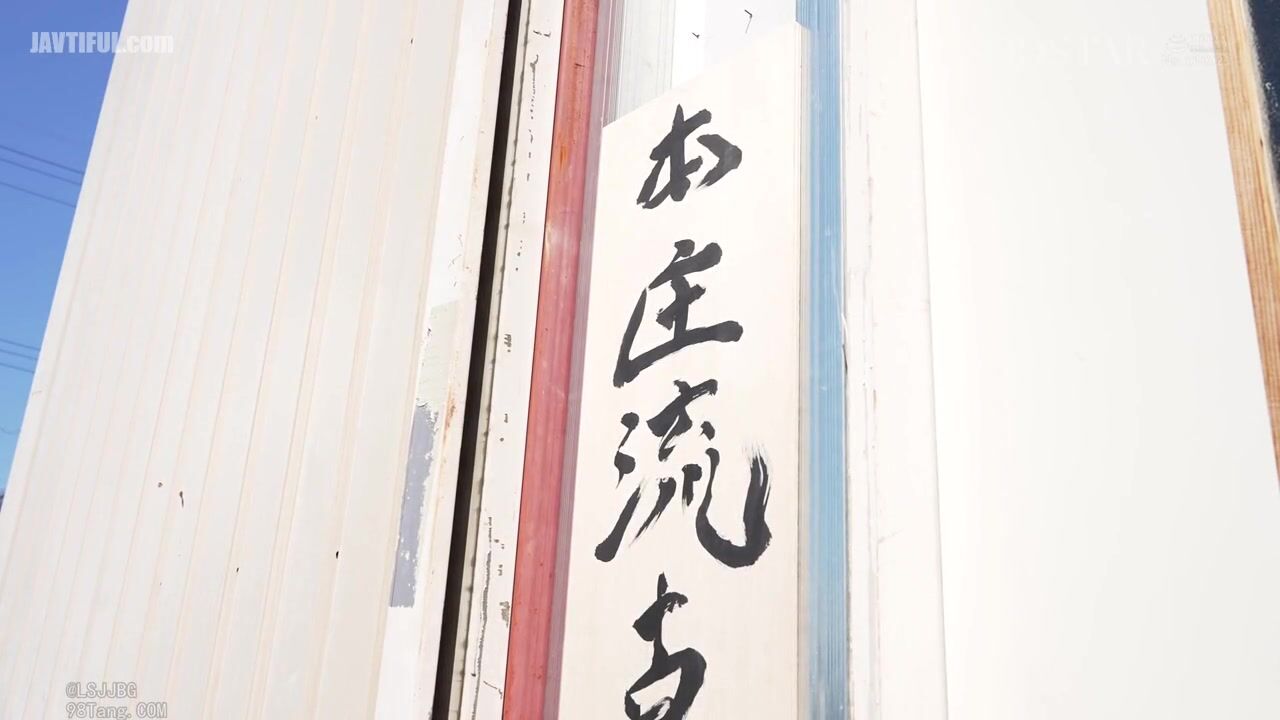 JAVTIFUL.com
本庄流古
@LSJJBG
98Tang.COM